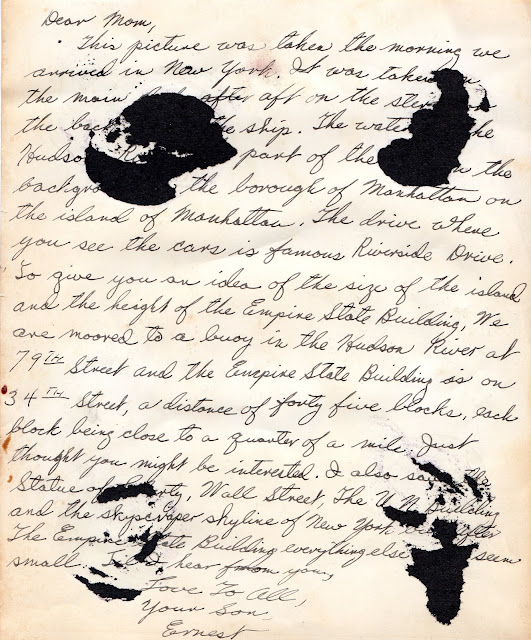 Dear Mom,
This picture was taken the morning we
arrived in New York. It was taken
the main after aft on the
the the ship. The the
Hudson part of the the
the borough of Manhattan on
the island of Manhattan. The drive where
you see the cars is famous Riverside Drive.
To give you an idea of the size of the island
and the height of the Empire State Building, We
are moored to a buoy in the Hudson River at
79TH Street and the Empire State Building is on
34TH Street, a distance of forty five blocks, each
block being close to a quarter of a mile. Just
thought you might be interested. I also
Statue of Liberty, Wall Street, The U N Building
and the skyscraper skyline of New York after
The Empire State Building everything else seem
small. hear from you,
Love To All,
Your Son,
Ernest